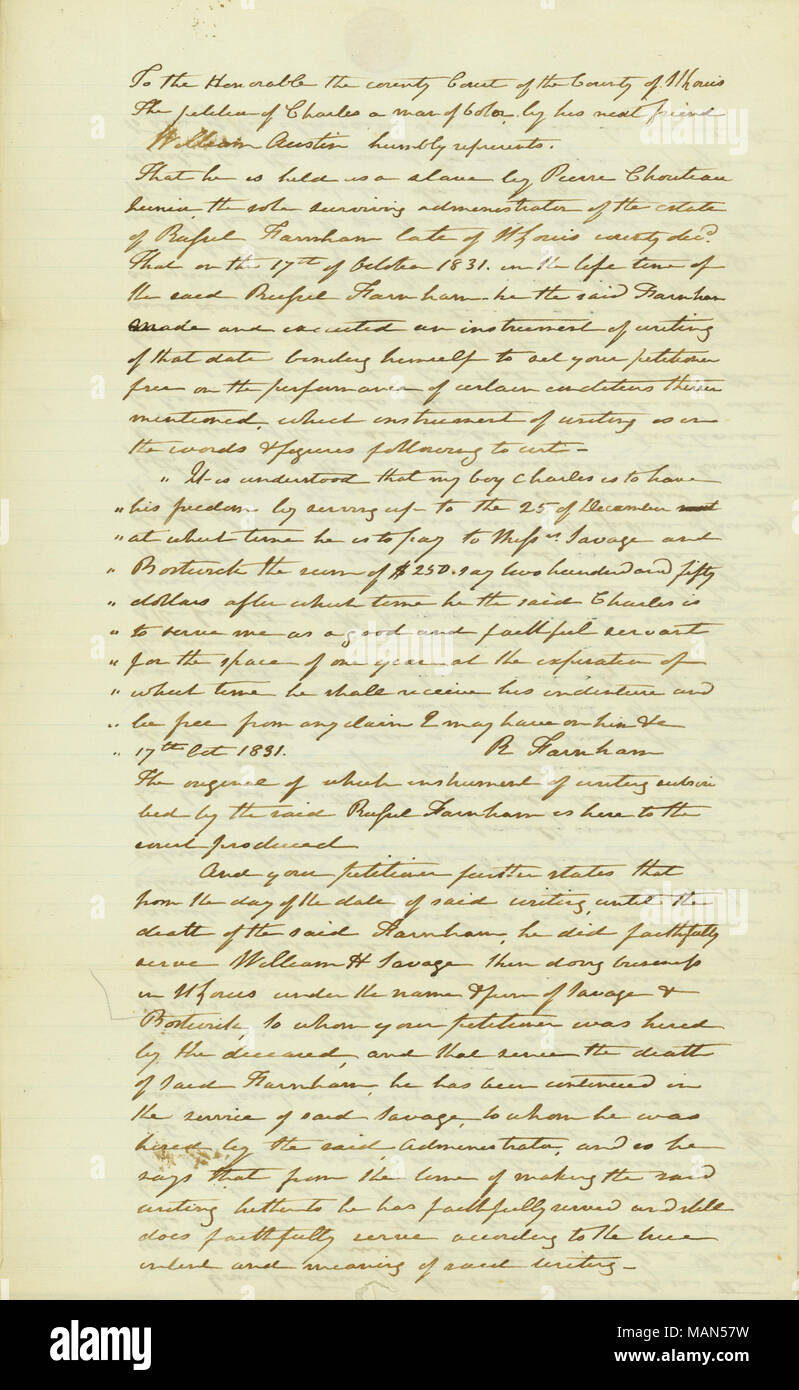 To the Honorable the county Court of the County of St Louis
The petition of Charles a man of Color, by his next friend
William Austin humbly represents.
That he is held as a slave by Pierre Chouteau
Junior the sole surviving administrator of the estate
of Russel Farnham late of St Louis county decd.
That on the 17th of October 1831. in the life time of
the said Russel Farnham he the said Farnham
made and executed an instrument of writing
of that date binding himself to set your petitioner
free on the performance of certain conditions therein
mentioned, which instrument of writing is in
the words & figures following to wit -
" It is understood that my boy Charles is to have
" his freedom by serving up to the 25 of December next
" at which time he is to pay to Messrs Savage and
" Bostwick the sum of $250. say two hundred and fifty
" dollars after which time he the said Charles is
" to serve me as a good and faithful servant
" for the space of one year at the expiration of
" which time he shall receive his indenture and
" be free from any claim I may have on him &c
" 17th Oct 1831. R Farnham
The original of which instrument of writing subscri
bed by the said Russel Farnham is here to the
court produced
And your petitioner further states that
from the day of the date of said writing, until the
death of the said Farnham, he did faithfully
serve William H Savage then doing business
in St Louis under the name & firm of Savage &
Bostwick, to whom your petitioner was hired
by the deceased, and that since the death
of said Farnham, he has been continued in
the service of said Savage, to whom he was
hired by the said administrator, and so he
says that from the time of making the said
writing hitherto he has faithfully served and still
does faithfully serve according to the true
intent and meaning of said writing -
alamy
Image ID: MAN57W
www.alamy.com